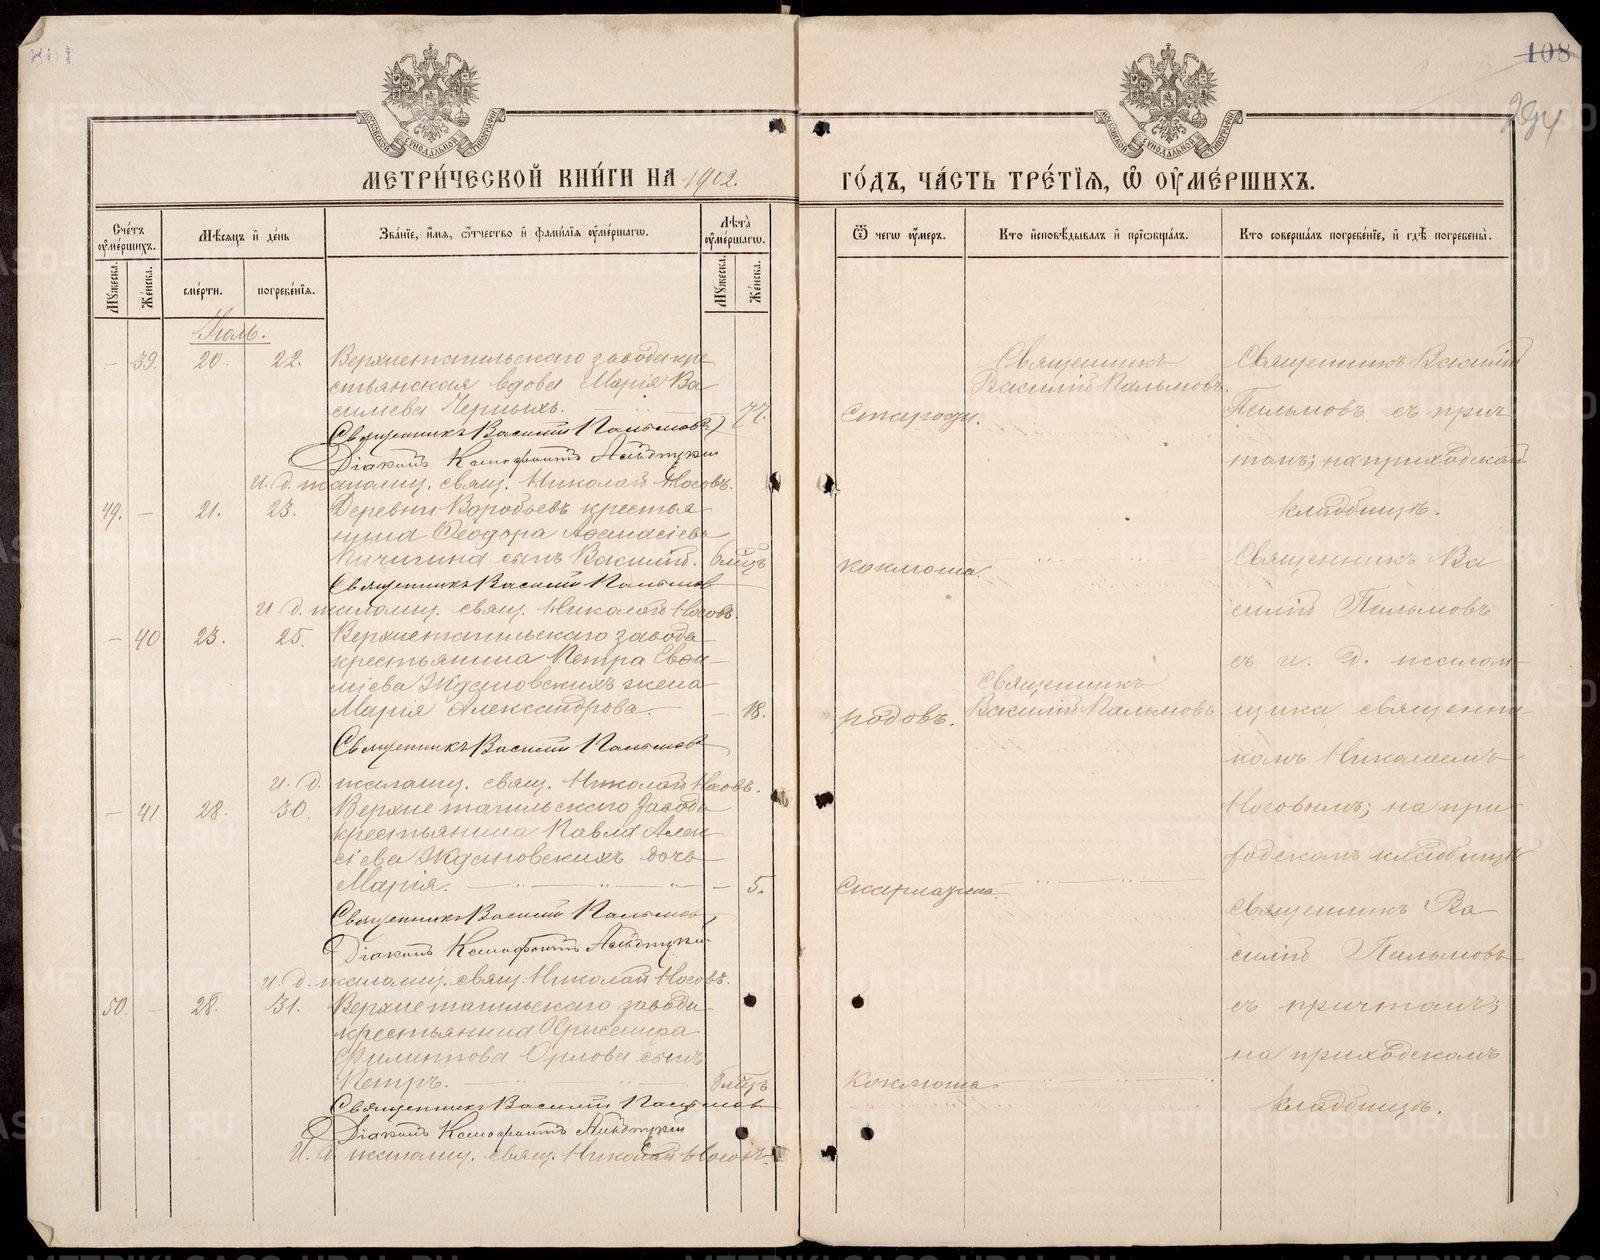 108
294
МОСКОВСКОЙ СѴНОДАЛЬНОЙ ТИПОГРАФІИ
МОСКОВСКОЙ СѴНОДАЛЬНОЙ ТИПОГРАФІИ
МЕТРИ́ЧЕСКОЙ КНИ́ГИ НА 1902. ГО́ДЪ, ЧА́СТЬ ТРЕ́ТЇѦ, Ѿ ОУМЕ́РШИХЪ.
Сче́тъ оуме́ршихъ.
Мꙋжеска.
Же́нска.
Мѣ́сѧцъ и҆ де́нь
сме́рти.
погребе́нїѧ.
Зва́нїе, и҆́мѧ, ѻ҆́тчество и҆ фами́лїѧ оуме́ршагѡ.
Лѣ̑та оуме́ршагѡ.
Мꙋжеска.
Же́нска.
Ѿ чегѡ̀ оу́меръ.
Кто̀ и҆сповѣ́дывалъ и҆ прїѡбща́лъ.
Кто̀ соверша́лъ погребе́нїе, и҆ гдѣ̀ погребены̀.
Іюль.
– 39. 20. 22. Верхнетагильскаго завода кре
стьянская вдова Марія Ва
сильева Черныхъ. 77.
Священникъ Василій Пальмовъ
Діаконъ Ксенофонтъ
И. д. псаломщ. свящ. Николай Носовъ.
старости.
Священникъ
Василій Пальмовъ.
Священникъ Василій
Пальмовъ съ прич
томъ; на приходскомъ
кладбищѣ.
49. – 21. 23. Деревни Воробьевъ крестья
нина Ѳеодора Аѳанасіева
Кичигина сынъ Василій. 6 мѣц
Священникъ Василій Пальмов
и. д. псаломщ. свящ. Николай Носовъ.
коклюша.
Священникъ Ва
силій Пальмовъ
съ и. д. псалом
щика священни
комъ Николаемъ
Носовымъ; на при
ходскомъ кладбищѣ
– 40 23. 25. Верхнетагильскаго завода
крестьянина Петра Евѳи
міева Ждановскихъ жена
Марія Александрова. – 18.
Священникъ Василій Пальмовъ
и. д. псаломщ. свящ. Николай Носовъ.
родовъ.
Священникъ
Василій Пальмовъ.
– 41 28. 30. Верхнетагильскаго завода
крестьянина Павла Алек
сіева Ждановскихъ дочь
Марія. – 5.
Священникъ Василій Пальмовъ
Діаконъ Ксенофонтъ
И. д. псаломщ. свящ. Николай Носовъ.
скарлатина.
Священникъ Ва
силій Пальмовъ
съ причтомъ;
на приходскомъ
кладбищѣ.
50. – 28. 31. Верхнетагильскаго завода
крестьянина
Филиппова Орлова сынъ
Петръ. мѣц
Священникъ Василій Пальмов
Діаконъ Ксенофонтъ
И. д. псаломщ. свящ. Николай Носовъ.
коклюша.
METRIKI.GASO-URAL.RU